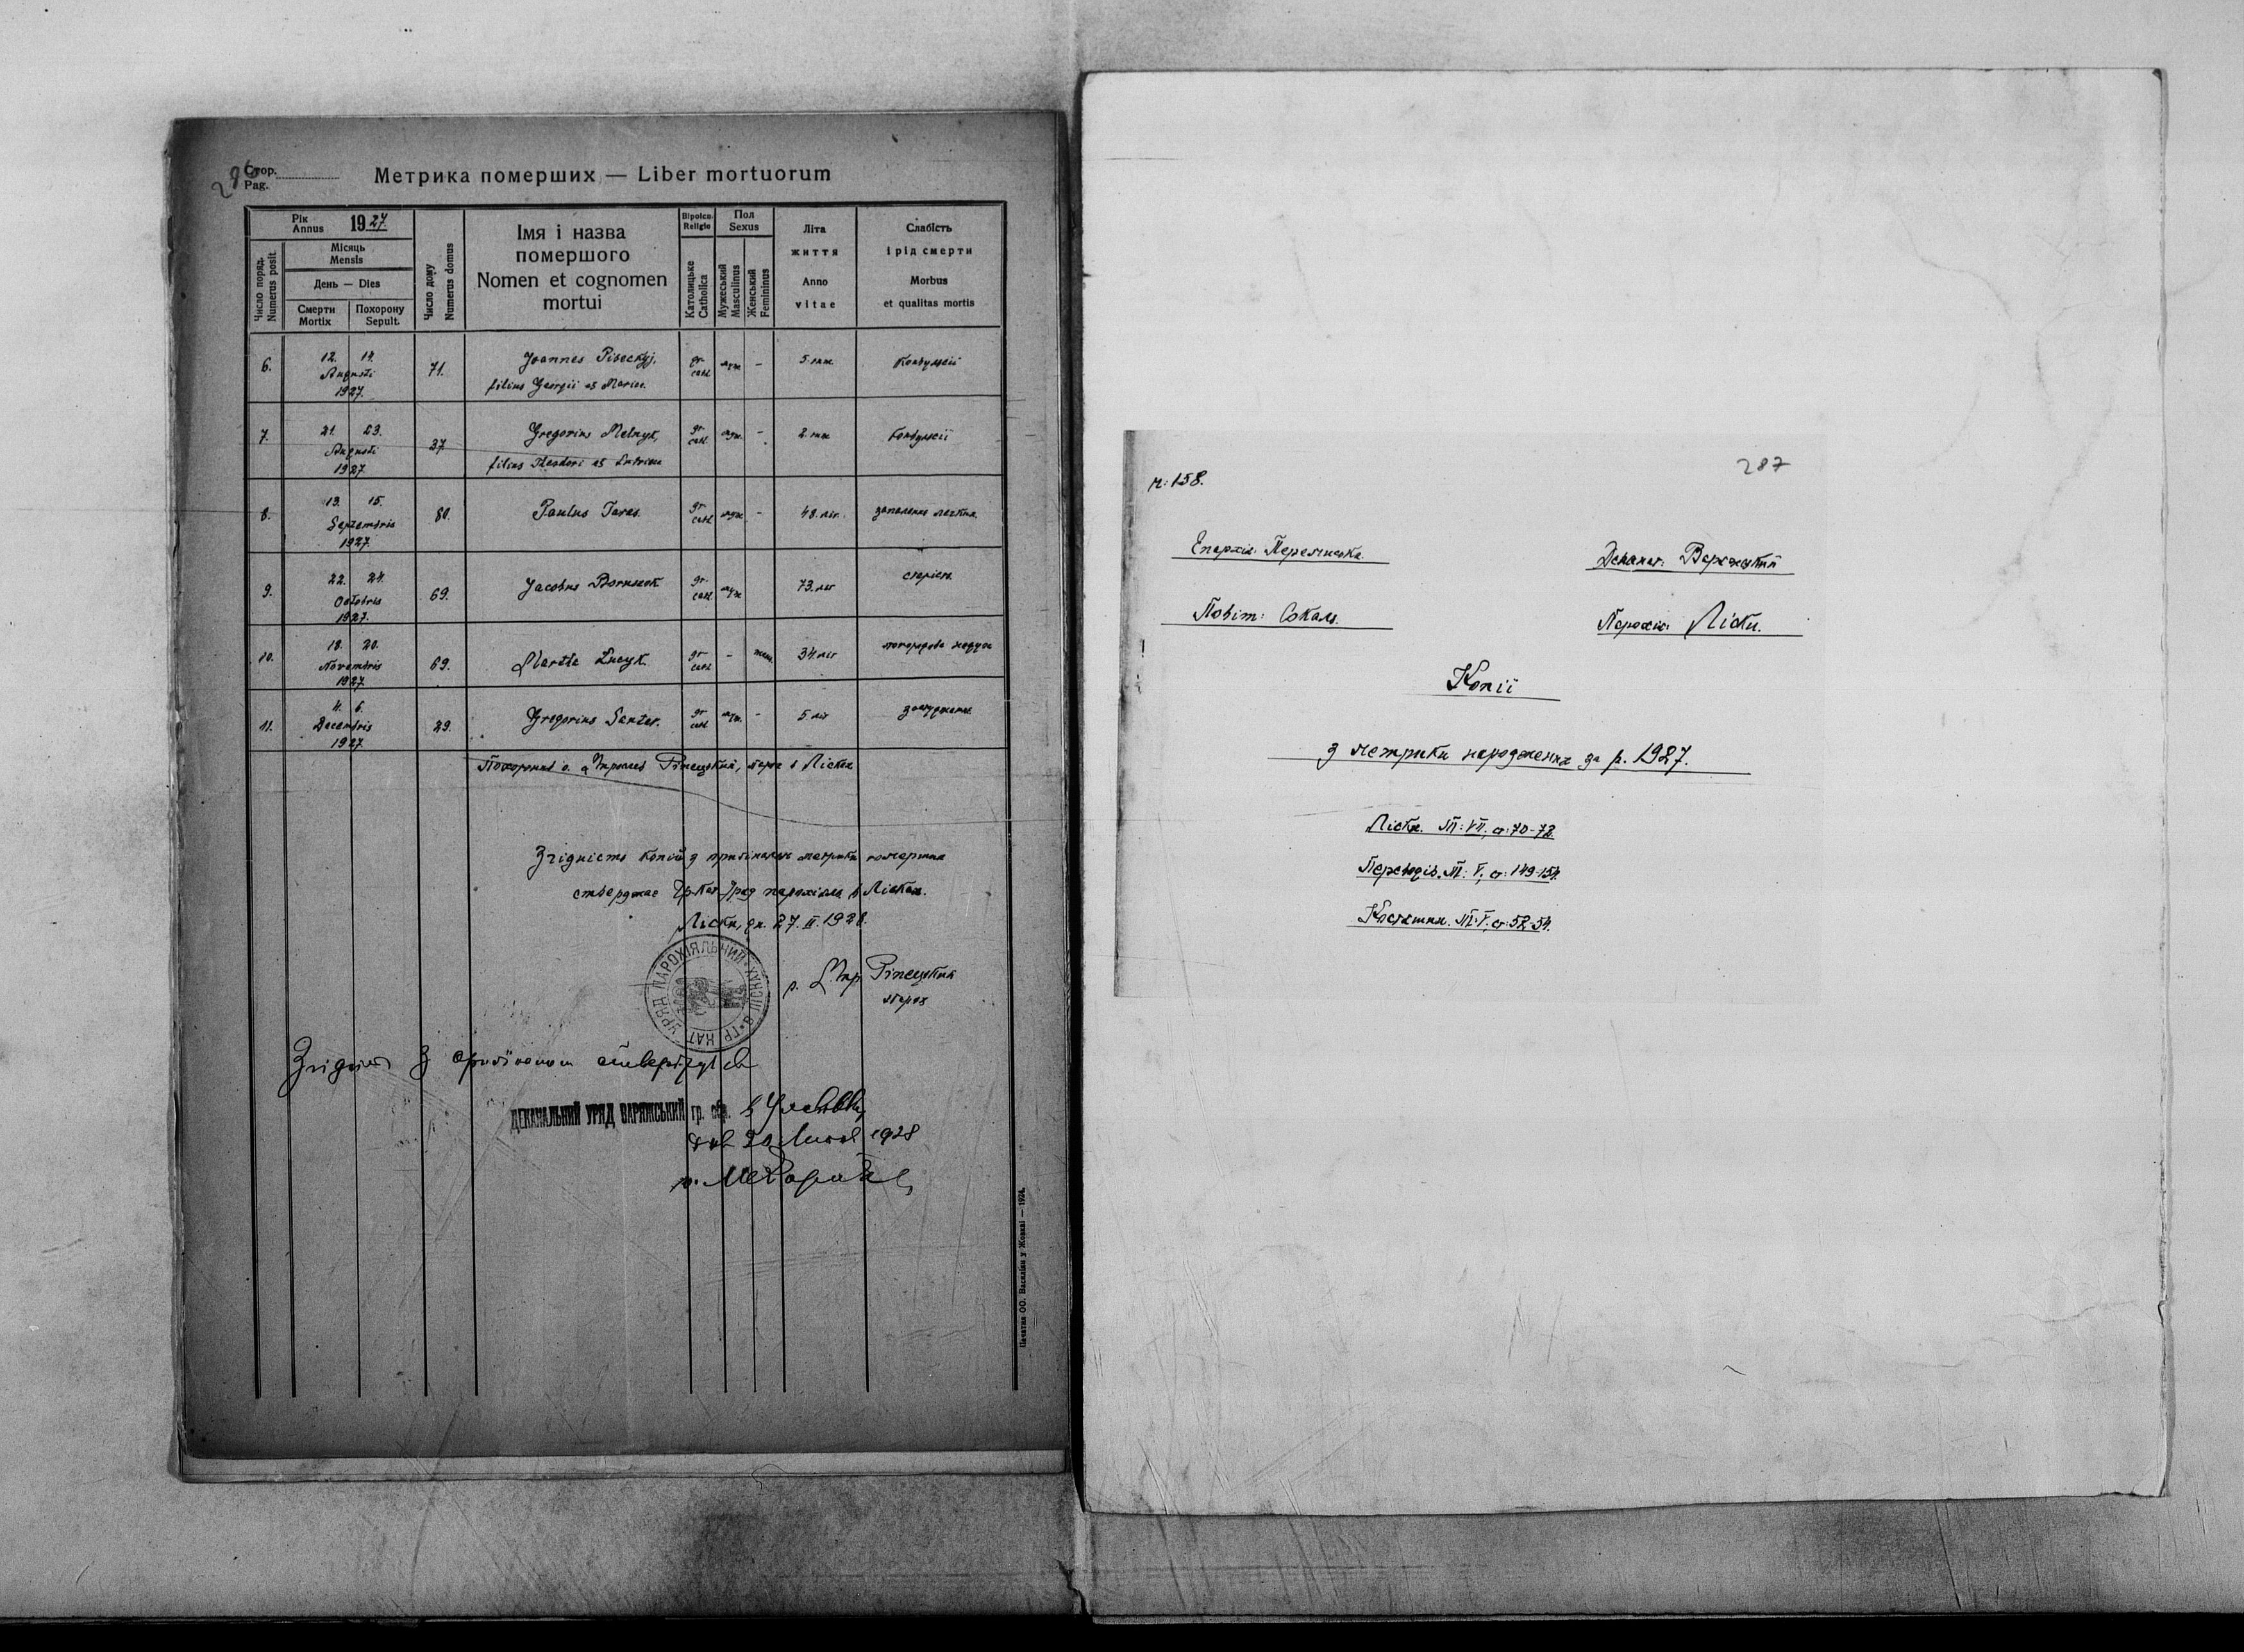 286
Стор.
Pag.
Метрика померших — Liber mortuorum
Рік
Annus
1927.
Місяць
Mensis
День — Dies
Число поряд.
Numerus posit.
Смерти
Mortix
Похорону
Sepult.
Число дому
Numerus domus
Імя і назва
помершого
Nomen et cognomen
mortui
Віроісп.
Religio
Католицьке
Catholica
Пол
Sexus
Мужеський
Masculinus
Женський
Femininus
Літа
життя
Anno
vitae
Слабість
і рід смерти
Morbus
et qualitas mortis
6. 12. 14. Augusti 1927. 71. Joannes Piseckyj, filius Georgii et Mariae. gr. cath. муж - 5. міс. конвульсії
7. 21. 23. Augusti 1927 37. Gregorius Melnyk, filius Theodori et gr. cath. муж. - 2. міс. конвульсії
8. 13. 15. Septembris 1927. 80. Paulus Taras. gr. cath. муж - 48. літ. запалення легких.
9. 22. 24. Octobris 1927. 69. Jacobus gr. cath. муж 73. літ старість.
10. 18. 20. Novembris 1927. 69. Martha Lucyk. gr. cath. - жен. 34 літ
11. 4. 6. Decembris 1927 29. Gregorius gr. cath. муж. - 5. літ
Похоронив о. Ріпецький, парох в Лісках
Згідність копії з оригіналом метрики померших
стверджає Гр. Кат. Уряд парохіяльн. в Лісках.
Ліски, дн. 27. II. 1928.
УРЯД ПАРОХІЯЛЬНИЙ ГР. КАТ.
о. Ріпецький
парох
Згідність з оригіналом стверджується
ДЕКАНАЛЬНИЙ УРЯД ВАРЯЖСЬКИЙ гр. обр. в
дня 20 1928
Печатня ОО. Василіян у Жовкві — 1924.
287
ч: 158.
Епархія: Перемиська.
Деканат: Варяжський
Повіт: Сокаль.
Парохія: Ліски.
Копії
з метрики народження за р. 1927.
Ліски. М: VII, ст: 70-72.
Переводів. М: V, ст: 149-154.
М: V, ст: 52-54.